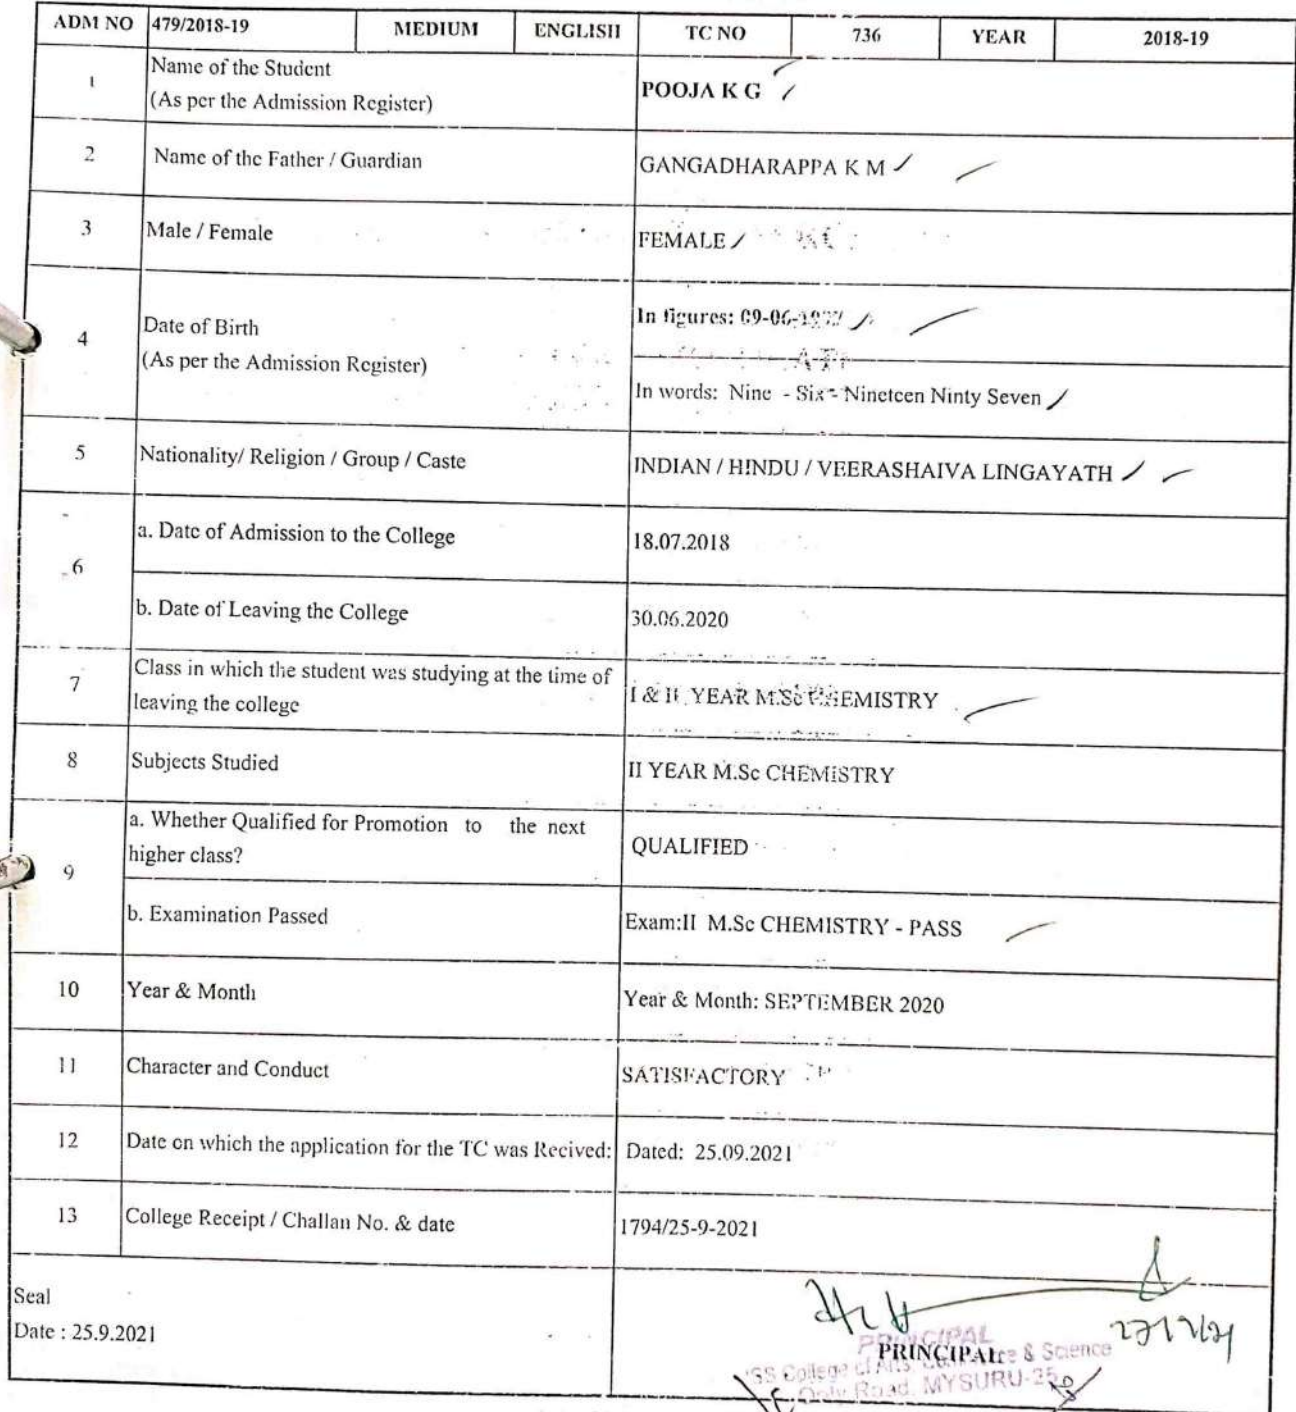 ADM NO 479/2018-19 MEDIUM ENGLISH TC NO 736 YEAR 2018-19
1 Name of the Student
(As per the Admission Register) POOJA K G
2 Name of the Father / Guardian GANGADHARAPPA K M
3 Male / Female FEMALE
4 Date of Birth
(As per the Admission Register) In figures: 09-06-
In words: Nine - Six - Nineteen Ninty Seven
5 Nationality/ Religion / Group / Caste INDIAN / HINDU / VEERASHAIVA LINGAYATH
6 a. Date of Admission to the College 18.07.2018
b. Date of Leaving the College 30.06.2020
7 Class in which the student was studying at the time of
leaving the college I & II YEAR M.Sc CHEMISTRY
8 Subjects Studied II YEAR M.Sc CHEMISTRY
9 a. Whether Qualified for Promotion to the next
higher class? QUALIFIED
b. Examination Passed Exam:II M.Sc CHEMISTRY - PASS
10 Year & Month Year & Month: SEPTEMBER 2020
11 Character and Conduct SATISFACTORY
12 Date on which the application for the TC was Recived: Dated: 25.09.2021
13 College Receipt / Challan No. & date 1794/25-9-2021
Seal
Date : 25.9.2021
PRINCIPAL
PRINCIPAL
College of Arts, & Science
Road, MYSURU-25